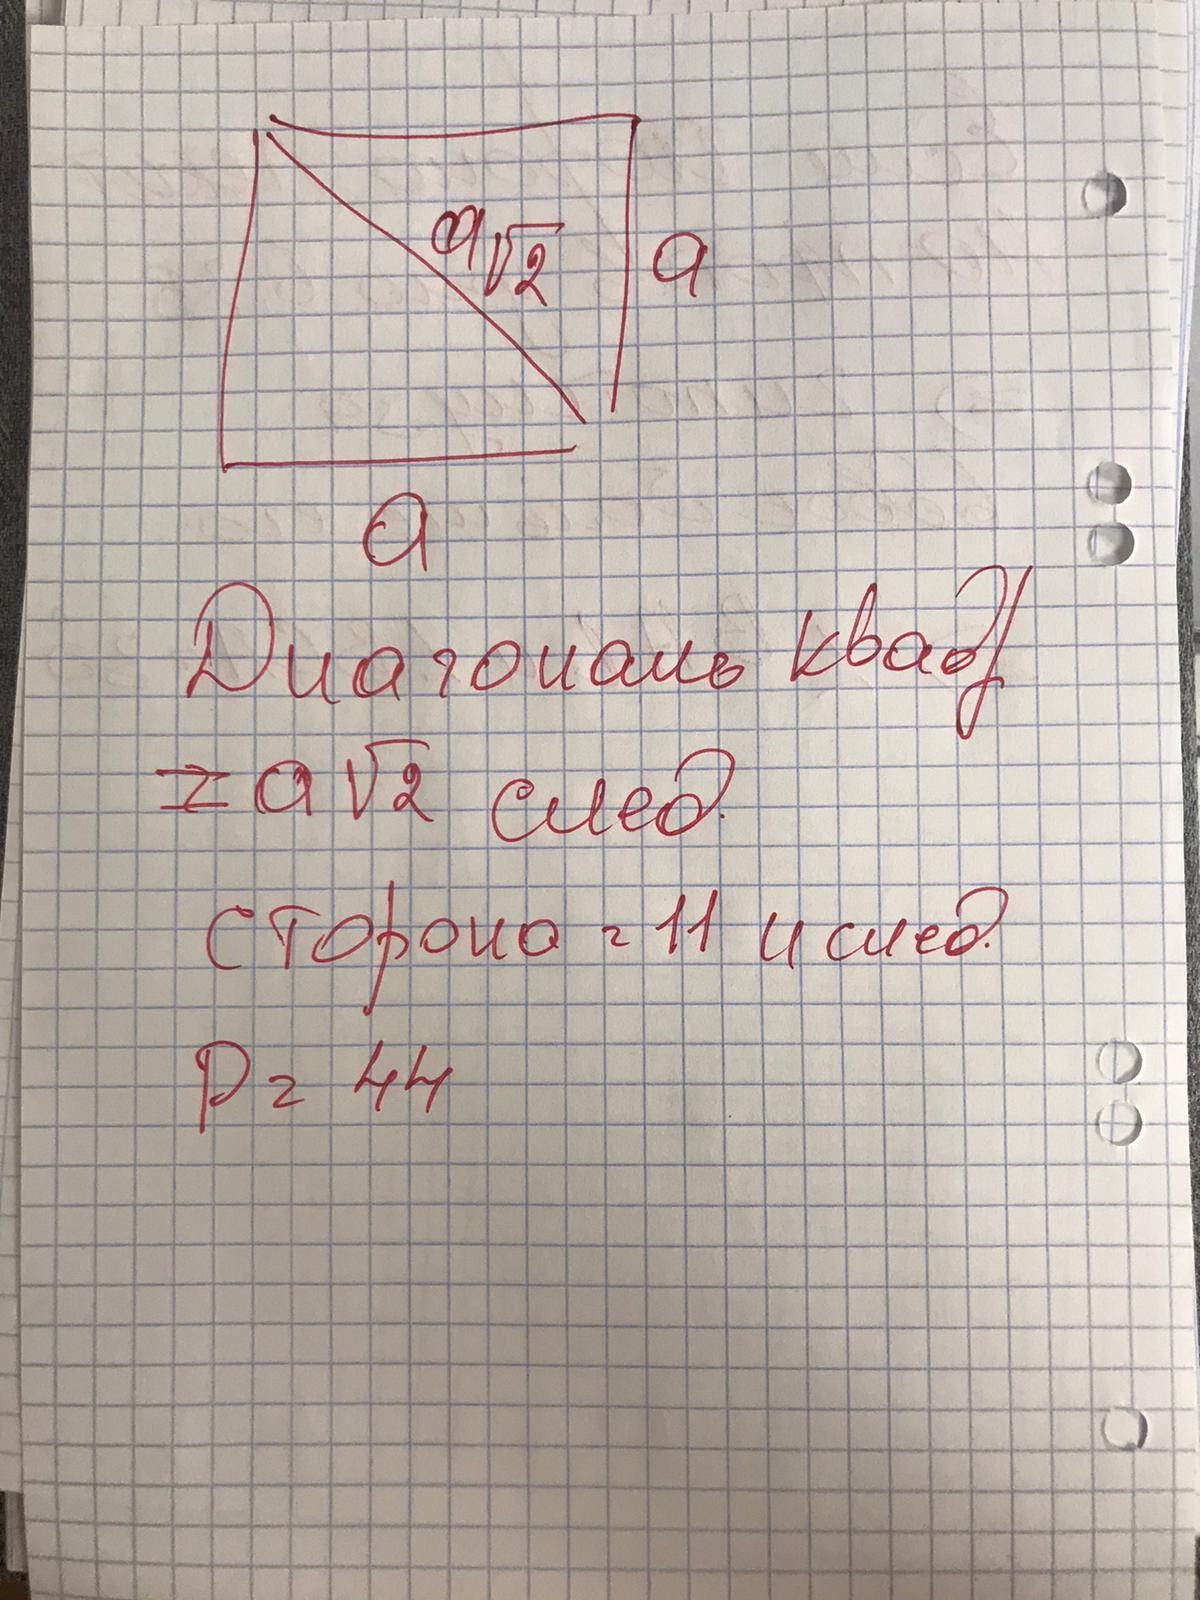 a√2
a
a
Диагональ квад/
= a√2 след.
сторона = 11 и след.
P = 44